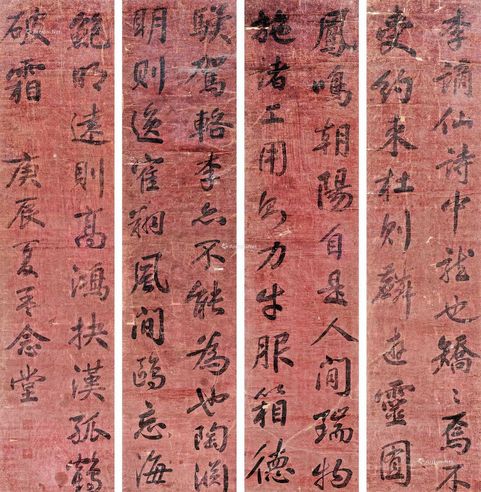 李謫仙詩中龍也矯〻焉不
受約束杜則麟遊靈囿
鳳鳴朝陽自是人間瑞物
施諸工用則力牛服箱德
驥駕輅李亦不能為也陶淵
明則逸隺翔風閒鷗忘海
鮑明遠則高鴻抉漢孤鶴
破霜 庚辰夏 念堂